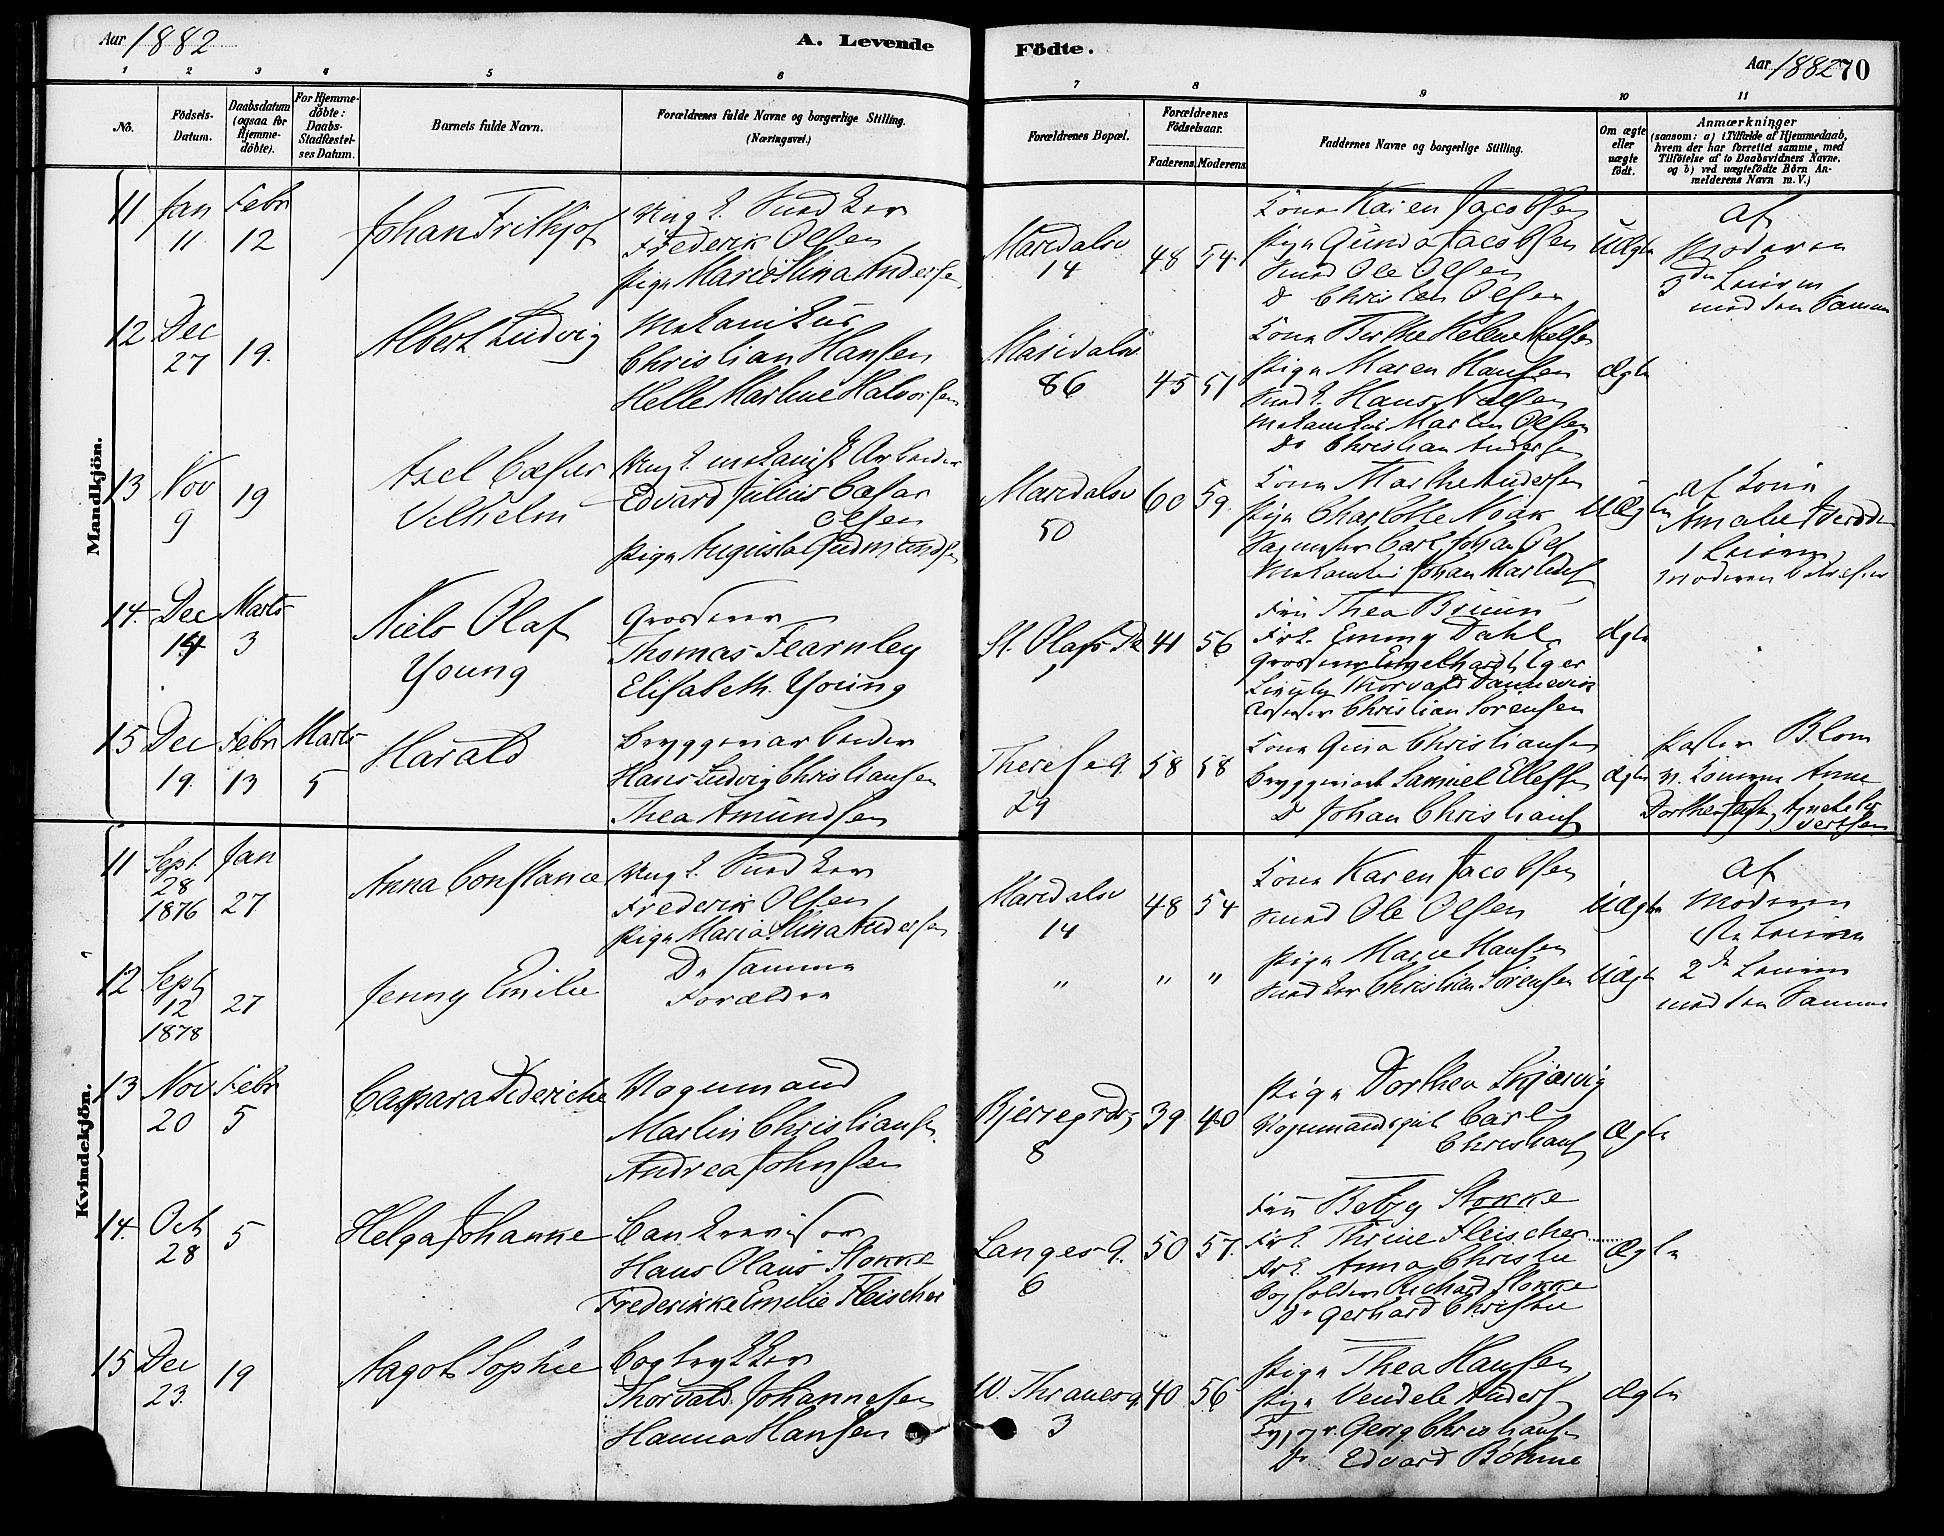 Aar 1882
A. Levende
Födte.
Aar 1882
70
1 2 3 4 5 6 7 8 9 10 11
No.
Födsels-
Datum.
Daabsdatum
(ogsaa for
Hjemme-
døbte).
For Hjemme-
døbte:
Daabs-
Stadfæstel-
ses Datum.
Barnets fulde Navn.
Forældrenes fulde Navne og borgerlige Stilling.
(Næringsvei.)
Forældrenes Bopæl.
Forældrenes
Födselsaar.
Faderens. Moderens.
Faddernes Navne og borgerlige Stilling.
Om ægte
eller
uægte
födt.
Anmærkninger
(saasom: a) i Tilfælde af Hjemmedaab,
hvem der har forrettet samme, med
Tilföielse af to Daabsvidners Navne.
og b) ved uægtefödte Börn An-
melderens Navn m. V.)
Mandkjön.
11 Jan 11
Febr 12
Johan Frithjof
Ung k. Snedker
Frederik Olsen
Pige Marie Mina Anders
Maridalsv 14
48 54
Kone Karen Jacobsen
Pige Gunda Jacobsen
Sned Ole Olsen
D Christen Olsen
Uægte
af
Moderen
3die Leierm
med den Samme
12 Dec 27
19.
Albert Ludvig
Mekanikus
Christian Hansen
Helle Marthine Halvorsen
Maridalsv 86
45 51
Kone Berthe Helene
Pige Maren Hansen
Snedk. Hans
Mekanikus Martin Olsen
Do Christian Andersen
Ægte
13 Nov 9
19
Axel Cæsar
Vilhelm
Ung k. mekanisk Arbeider
Edvard Julius Cæsar
Olsen
Pige Augusta Gudmunds
Maridalsv 50
60 59
Kone Marthe Andersen
Pige Charlotte Noak
Carl Johan
Johan
Uægte
af Kone
Amalie
1 Leierm
Moderen
14. Dec 14
Marts 3
Niels Olaf
Young
Grosserer
Thomas Fearnley
Elisabeth Young
St. Olafs Pl 1
41 56
Fru Thea Bruun
Frk. Emmy Dahl
Grosserer Engelhardt Eger
Thorvald Dannevig
Christian Sörensen
Ægte
15 Dec 19.
Febr 13
Marts 5
Harald
Bryggeriarbeider
Hans Ludvig Christiansen
Thea Amundsen
Therese g. 29
58 58
Kone Gina Christians
Bryggeriarb Samuel Ellefs
D Johan Christians
Ægte
Pastor Blom
v. Konerne Anne
Dorthea
Kvindekjön.
11 Sept 28 1876
Jan 27
Anna Constance
Ung k. Snedker
Frederik Olsen
Pige Maria Mina Anders
Maridalsv 14
48 54
Kone Karen Jacobsen
Snед Ole Olsen
Uægte
af
Moderen
1ste Leierm
12 Sept 12 1878
27
Jenny Emilie
De samme
Forældre
" " "
Pige Marie Hansen
Snedker Christian Sörensen
Uægte
2det Leierm
med den Samme
13 Nov 20
Febr 5
Caspara Diderikke
Vognmand
Martin Christians
Andrea Johnsen
Bjerregrdsg 8
39 40
Pige Dorthea Skjærvig
Vognmandsgut Carl
Christians
Ægte
14. Oct 28
5
Helga Johanne
Bankrevisor
Hans Olaus Stokke
Frederikke Emilie Fleischer
Langes g. 6
50 57.
Fru Betzy Stokke
Frk. Thrine Fleischer
Frk. Anna Christie
Bogholder Richard Stokke
Do Gerhard Christie
Ægte
15 Dec 23.
19
Aagot Sophie
Bogtrykker
Thorvald Johannesen
Hanna Hansen
W. Thranes g. 3
40 56
Pige Thea Hansen
Pige Vendele Anders
Typogr. Georg Christians
Do Edvard Böhme
Ægte